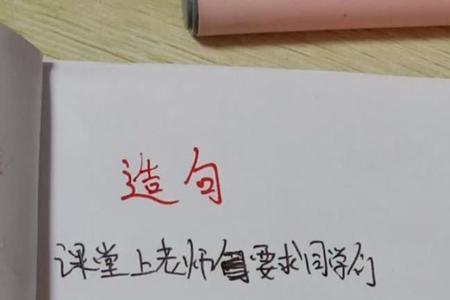 造句
课堂上老师要求同学们